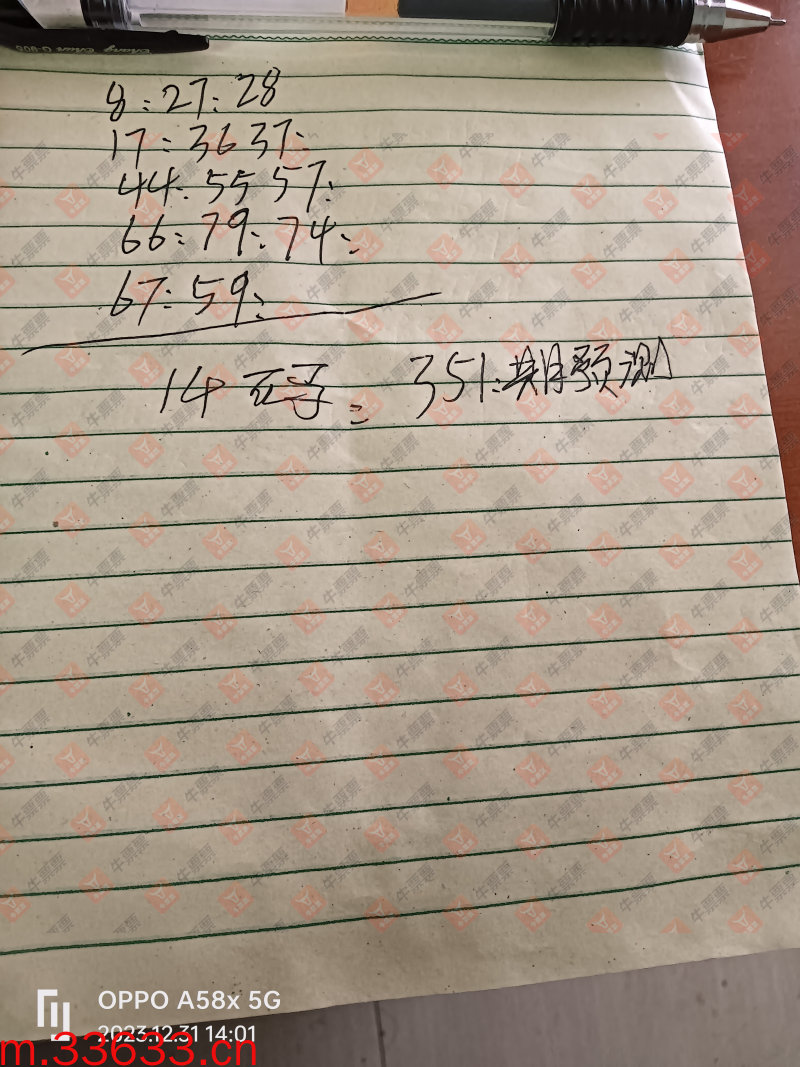 Chung Chun G-905
8:27:28
17:36 37:
44:55 57:
66:79:74:
67:59:
14 351:期预测
牛票票
OPPO A58x 5G
2023.12.31 14:01
m.33633.cn